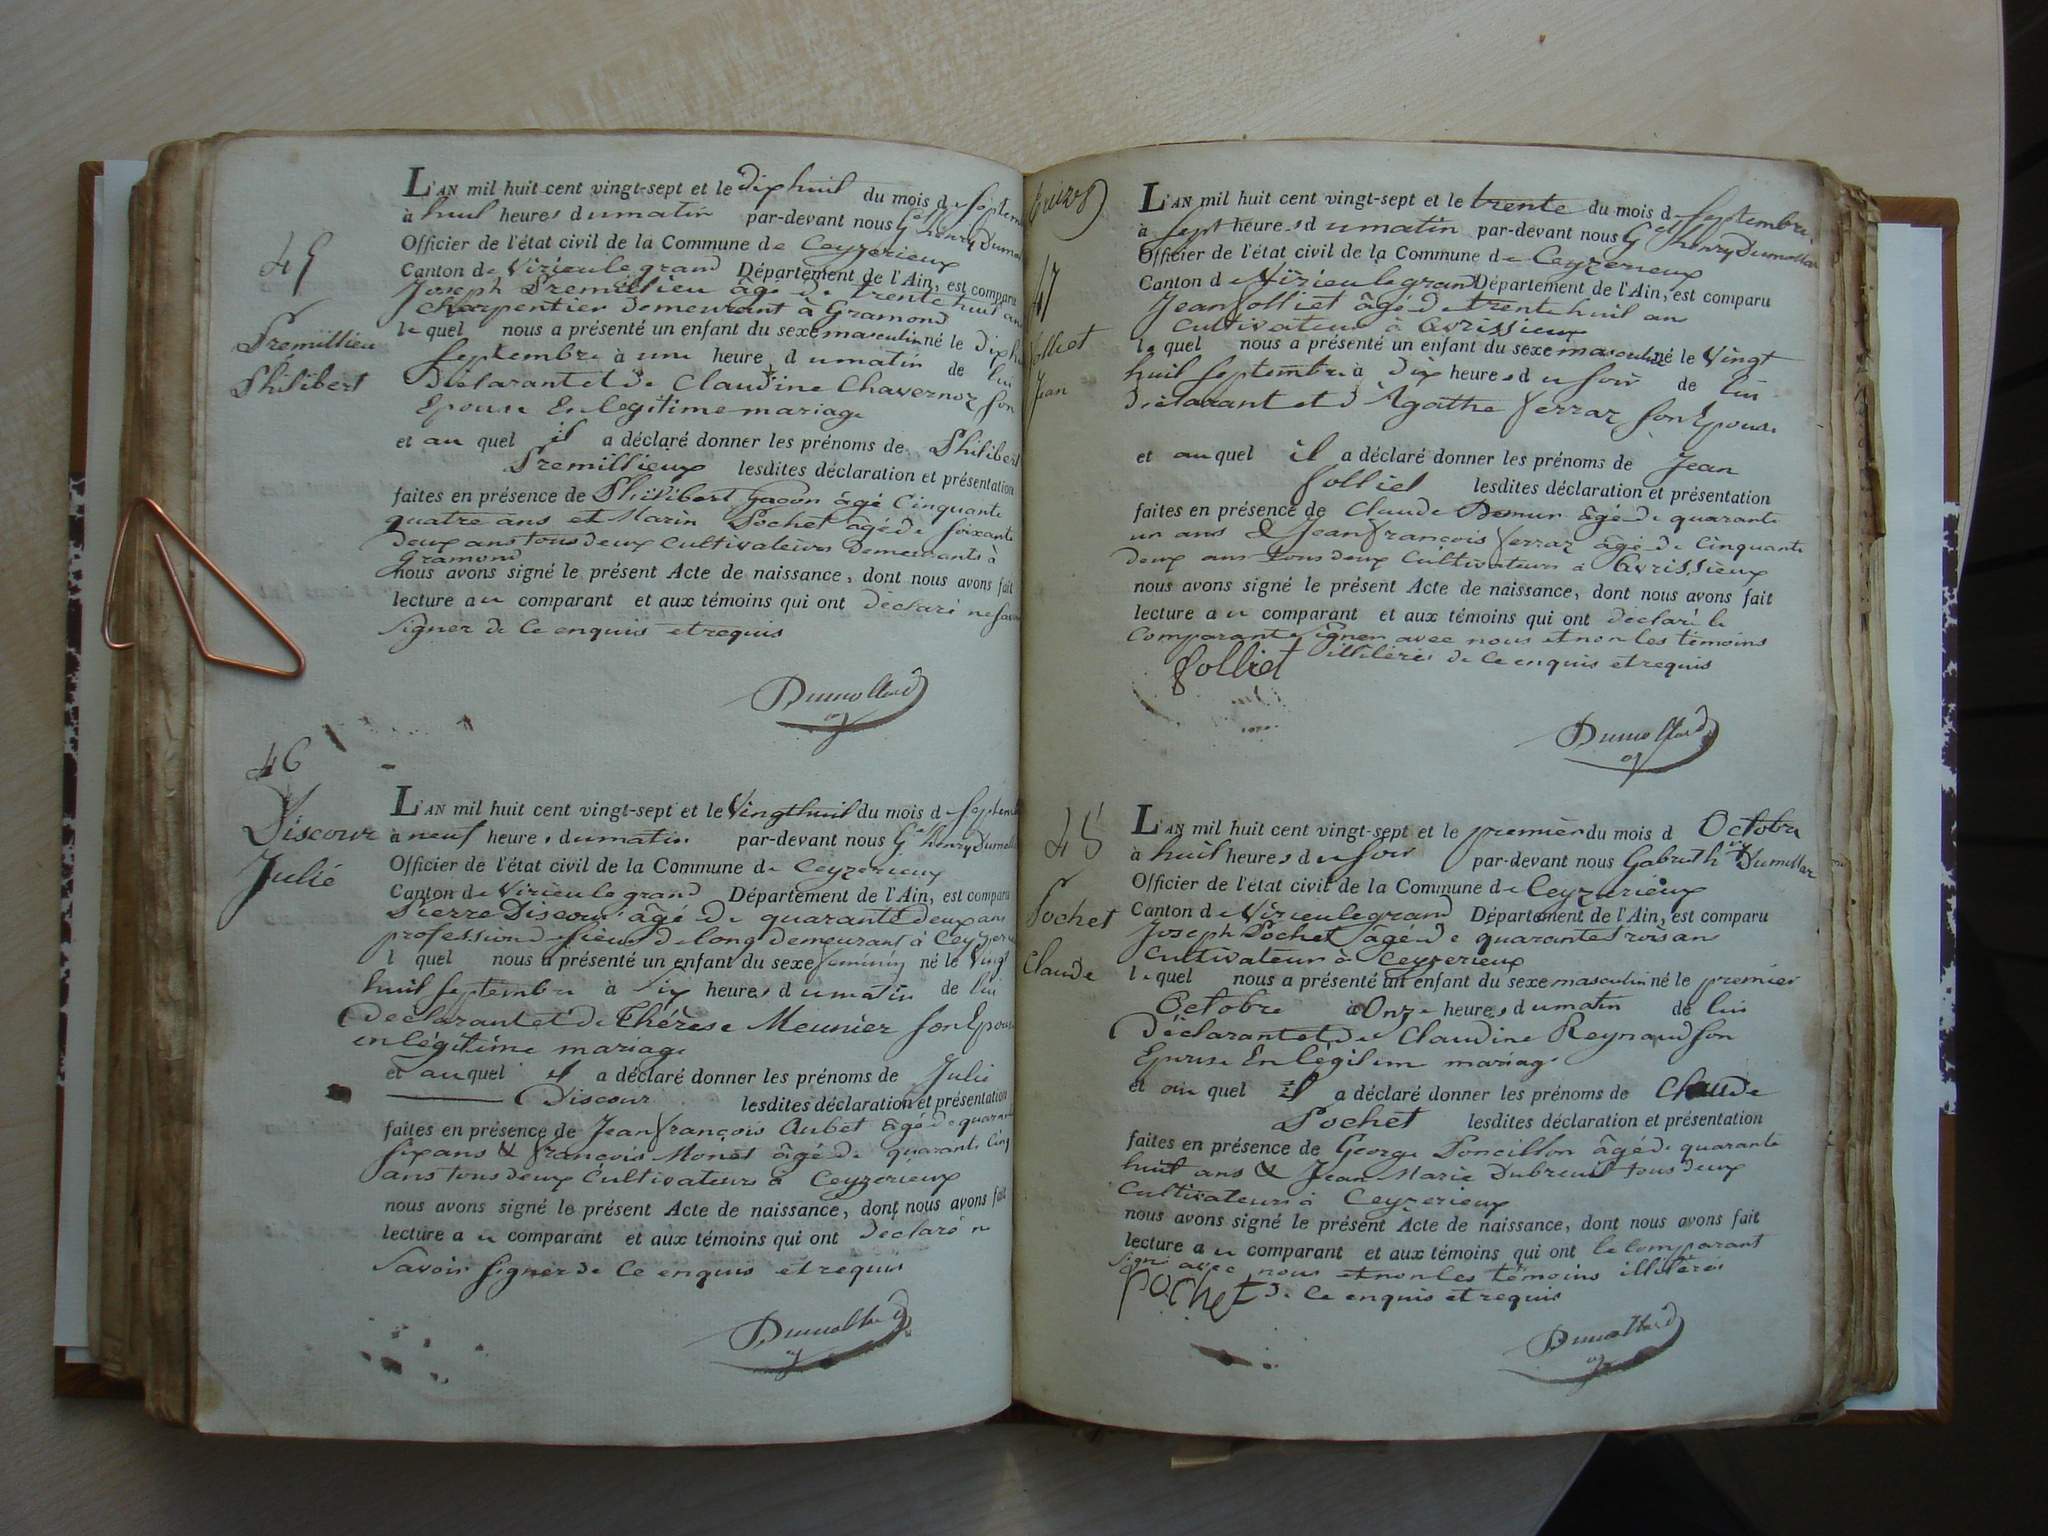 45
Premillieu
Philibert
L'AN mil huit cent vingt-sept et le dix huit du mois de septem
à huit heures du matin par-devant nous Gel henry Dumol
Officier de l'état civil de la Commune de Ceyzerieux
Canton de Virieu le grand Département de l'Ain, est comparu
Joseph Premillieu âgé de trente huit an
Charpentier demeurant à Gramond
le quel nous a présenté un enfant du sexe masculin né le dix h
septembre à une heure du matin de lui
Déclarant et de Claudine Chavernoz son
Epouse En legitime mariage
et au quel il a déclaré donner les prénoms de Philibert
Premillieux lesdites déclaration et présentation
faites en présence de Philibert Jacon âgé Cinquante
quatre ans et Marin Pochet âgé de soixante
deux ans tous deux cultivateurs demeurants à
Gramond
nous avons signé le présent Acte de naissance, dont nous avons fait
lecture au comparant et aux témoins qui ont déclaré ne sav
signer de ce enquis et requis
Dumollard
46
Discour
Julie
L'AN mil huit cent vingt-sept et le Vingt huit du mois de septem
à neuf heures du matin par-devant nous Gel henry Dumoll
Officier de l'état civil de la Commune de Ceyzerieux
Canton de Virieu le grand Département de l'Ain, est comparu
Pierre Discour âgé de quarante deux ans
profession de sieur de long demeurant à Ceyzeri
l quel nous a présenté un enfant du sexe feminin né le Vingt
huit septembre à six heures du matin de lui
Declarant et de Thérèse Meunier son Epouse
en légitime mariage
et au quel il a déclaré donner les prénoms de Julie
Discour lesdites déclaration et présentation
faites en présence de Jean françois Aubet âgé de quaran
six ans & françois Monet âgé de quarante cinq
ans tous deux Cultivateurs à Ceyzerieux
nous avons signé le présent Acte de naissance, dont nous avons fait
lecture au comparant et aux témoins qui ont déclaré n
savoir signer de ce enquis et requis
Dumollard
47
Jolliet
Jean
L'AN mil huit cent vingt-sept et le trente du mois de septembre
à sept heures du matin par-devant nous Gel henry Dumollar
Officier de l'état civil de la Commune de Ceyzerieux
Canton de Virieu le grand Département de l'Ain, est comparu
Jean Jolliet âgé de trente huit an
Cultivateur à Avrissieux
le quel nous a présenté un enfant du sexe masculin né le Vingt
huit septembre à dix heures du soir de lui
Déclarant et d'Agathe ferraz son Epouse
et au quel il a déclaré donner les prénoms de Jean
Jolliet lesdites déclaration et présentation
faites en présence de Claude Demur âgé de quarante
un ans & Jean françois ferraz âgé de Cinquante
deux ans tous deux Cultivateurs à Avrissieux
nous avons signé le présent Acte de naissance, dont nous avons fait
lecture au comparant et aux témoins qui ont déclaré le
Comparant signer avec nous et non les témoins
illitérés de ce enquis et requis
Jolliet
Dumollard
48
Pochet
Claude
L'AN mil huit cent vingt-sept et le premier du mois d Octobre
à huit heures du soir par-devant nous Gabriel hry Dumollar
Officier de l'état civil de la Commune de Ceyzerieux
Canton de Virieu le grand Département de l'Ain, est comparu
Joseph Pochet âgé de quarante trois ans
Cultivateur à Ceyzerieux
le quel nous a présenté un enfant du sexe masculin né le premier
Octobre à Onze heures du matin de lui
Déclarant et de Claudine Reynaud son
Epouse En légitime mariage
et au quel il a déclaré donner les prénoms de Claude
Pochet lesdites déclaration et présentation
faites en présence de George Poncillon âgé de quarante
huit ans & Jean Marie Dubreuil tous deux
Cultivateurs à Ceyzerieux
nous avons signé le présent Acte de naissance, dont nous avons fait
lecture au comparant et aux témoins qui ont le comparant
signé avec nous et non les témoins illitérés
Pochet de ce enquis et requis
Dumollard